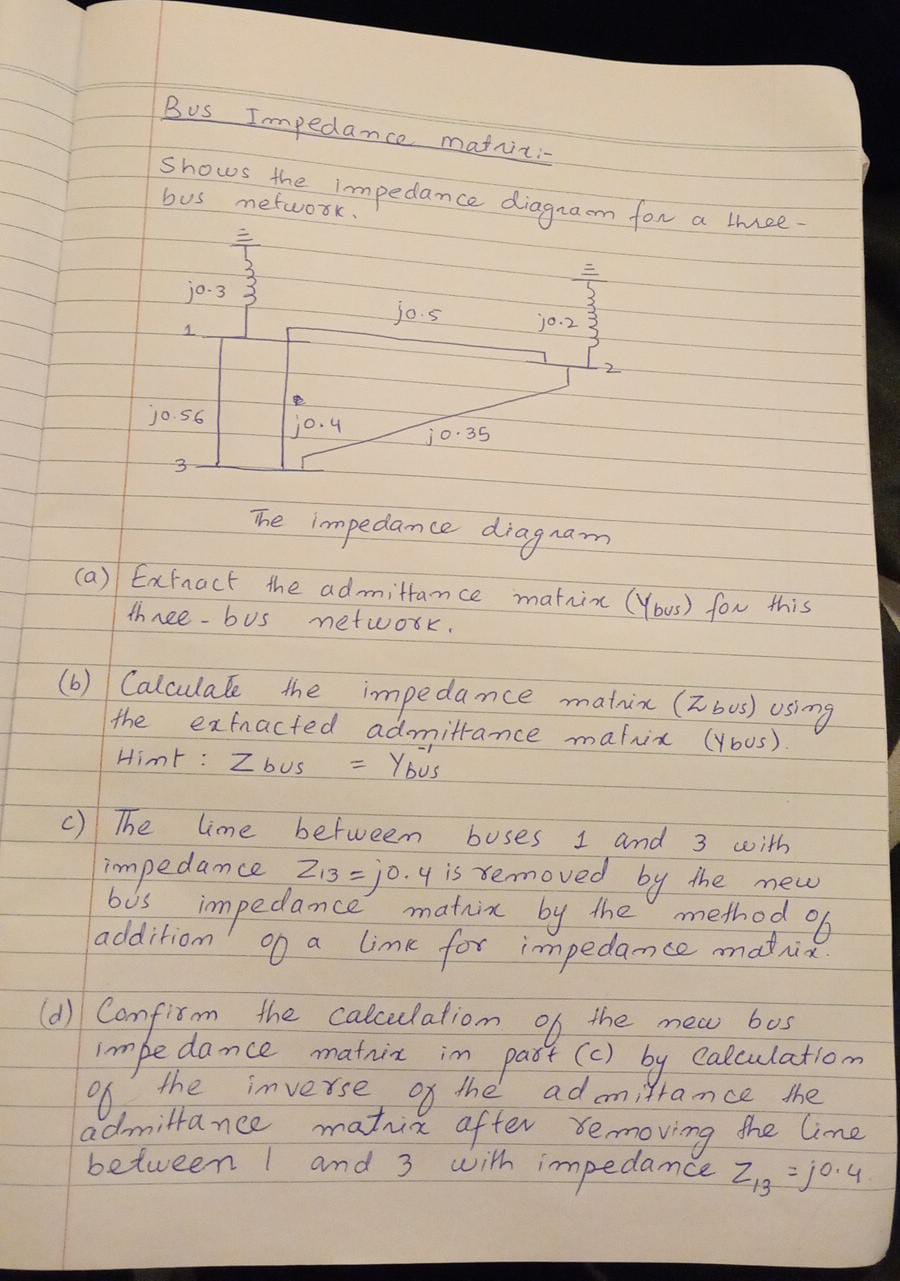 Bus Impedance matrix:-
Shows the impedance diagram for a three-
bus network.
j0.3
j0.5
j0.2
1
2
j0.56
j0.4
j0.35
3
The impedance diagram
(a) Extract the admittance matrix (Ybus) for this
three-bus network.
(b) Calculate the impedance matrix (Zbus) using
the extracted admittance matrix (Ybus).
Hint : Zbus = Ybus⁻¹
c) The line between buses 1 and 3 with
impedance Z13 = j0.4 is removed by the new
bus impedance matrix by the method of
addition of a link for impedance matrix.
(d) Confirm the calculation of the new bus
impedance matrix in part (c) by calculation
of the inverse of the admittance the
admittance matrix after removing the line
between 1 and 3 with impedance Z13 = j0.4.